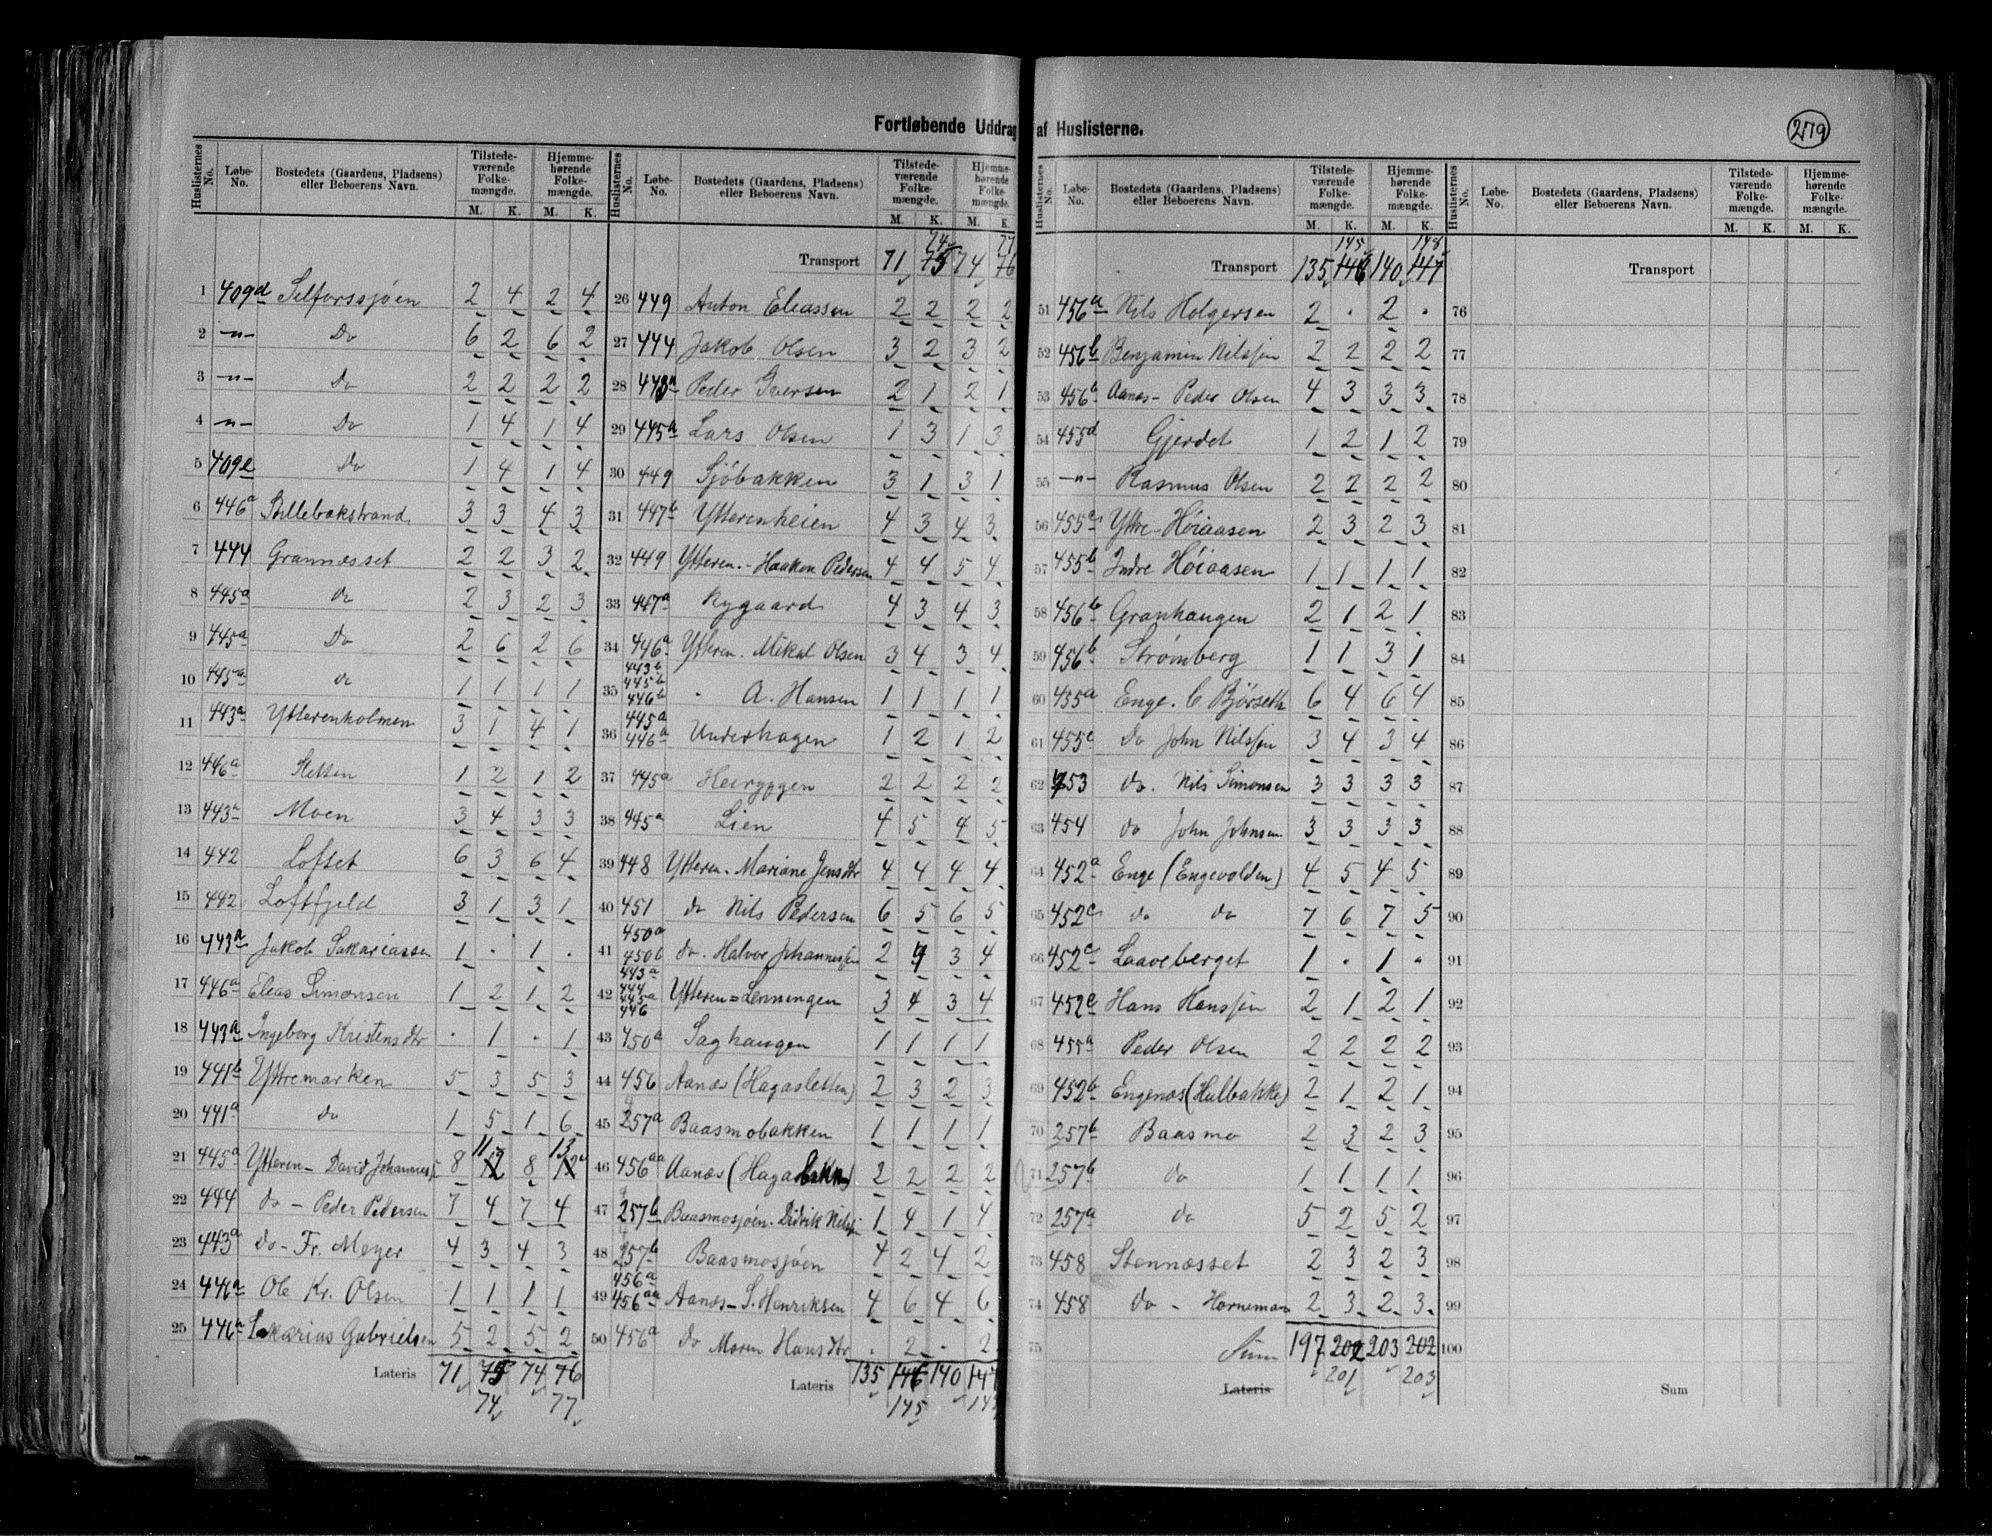 Fortløbende Uddrag af Huslisterne.
279
Huslisternes No. Løbe-No. Bostedets (Gaardens, Pladsens) eller Beboerens Navn. Tilstedeværende Folkemængde. M. K. Hjemmehørende Folkemængde. M. K.
1 409d Selforssjøen 2 4 2 4
2 -"- Do 6 2 6 2
3 -"- Do 2 2 2 2
4 -"- Do 1 4 1 4
5 409e Do 1 4 1 4
6 446a 3 3 4 3
7 444 Grannæsset 2 2 3 2
8 445a do 2 3 2 3
9 445a Do 2 6 2 6
10 445a do 1 1 1 1
11 443a Ytterenholmen 3 1 4 1
12 446a Sletten 1 2 1 2
13 443a Moen 3 4 3 3
14 442 Loftet 6 3 6 4
15 442 Loftfjeld 3 1 3 1
16 443a Jakob Sakariassen 1 . 1 .
17 446a Eleas Simonsen 1 2 1 2
18 443a Ingeborg Kristensdtr . 1 . 1
19 441b Yttremarken 5 3 5 3
20 441a do 1 5 1 6
21 445a Ytteren - David 8 11 8 13
22 444 do - Peder Pedersen 7 4 7 4
23 443a do - Fr. Meyer 4 3 4 3
24 446a Ole Kr. Olsen 1 1 1 1
25 446a Sakarias Gabrielsen 5 2 5 2
Lateris 71 75 74 76
74 77
Huslisternes No. Løbe-No. Bostedets (Gaardens, Pladsens) eller Beboerens Navn. Tilstedeværende Folkemængde. M. K. Hjemmehørende Folkemængde. M. K.
74 77
Transport 71 75 74 76
26 449 Anton Eleassen 2 2 2 2
27 444 Jakob Olsen 3 2 3 2
28 443a Peder Iversen 2 1 2 1
29 445a Lars Olsen 1 3 1 3
30 449 Sjöbakken 3 1 3 1
31 447b Ytterenheien 4 3 4 3
32 449 Ytteren. - Haaken Pedersen 4 4 5 4
33 447a Nygaard 4 3 4 3
34 446a Ytteren. Mikal Olsen 3 4 3 4
443b
445b
35 446b " A. Hansen 1 1 1 1
445a
36 446a Underhagen 1 2 1 2
37 445a Heiryggen 2 2 2 2
38 445a Lien 4 5 4 5
39 448 Ytteren. Mariane Jensdtr 4 4 4 4
40 451 do Nils Pedersen 6 5 6 5
450a
41 450b do. Halvor Johannessen 2 4 3 4
443a
444
42 445a Ytteren = Lenningen 3 4 3 4
446
43 450a Saghaugen 1 1 1 1
44 456 Aanæs (Hagasletten) 2 3 2 3
45 257a Baasmobakken 1 1 1 1
46 456aa Aanæs 2 2 2 2
47 257b Baasmosjöen. Didrik 1 4 1 4
48 257b Baasmosjöen 4 2 4 2
456a
49 456aa Aanæs - S. Henriksen 4 6 4 6
50 456a do Maren Hansdtr . 2 . 2
Lateris 135 146 140 147
145
Huslisternes No. Løbe-No. Bostedets (Gaardens, Pladsens) eller Beboerens Navn. Tilstedeværende Folkemængde. M. K. Hjemmehørende Folkemængde. M. K.
145 148
Transport 135 146 140 147
51 456a Nils Holgersen 2 . 2 .
52 456b Benjamin Nilssen 2 2 2 2
53 456a Aanæs - Peder Olsen 4 3 3 3
54 455d Gjerdet 1 2 1 2
55 -"- Rasmus Olsen 2 2 2 2
56 455a Yttre - Høiaasen 2 3 2 3
57 455b Indre Høiaasen 1 1 1 1
58 456b Granhaugen 2 1 2 1
59 456b Strømberg 1 1 3 1
60 455a Enge. C. Bjørseth 6 4 6 4
61 455c Do John Nilssen 3 4 3 4
62 453 do. Nils Simonsen 3 3 3 3
63 454 do John Johnsen 3 3 3 3
64 452a Enge (Engevolden) 4 5 4 5
65 452c do do 7 6 7 5
66 452c Laaveberget 1 . 1 .
67 452c Hans Hanssen 2 1 2 1
68 455a Peder Olsen 2 2 2 2
69 452b Engenæs (Hulbakken) 2 1 2 1
70 257b Baasmo 2 3 2 3
71 257b do 1 1 1 1
72 257a do 5 2 5 2
73 458 Stennæsset 2 3 2 3
74 458 do - Horneman 2 3 2 3
75 Sum 197 202 203 202
Lateris 201 203
Huslisternes No. Løbe-No. Bostedets (Gaardens, Pladsens) eller Beboerens Navn. Tilstedeværende Folkemængde. M. K. Hjemmehørende Folkemængde. M. K.
Transport
76
77
78
79
80
81
82
83
84
85
86
87
88
89
90
91
92
93
94
95
96
97
98
99
100
Sum